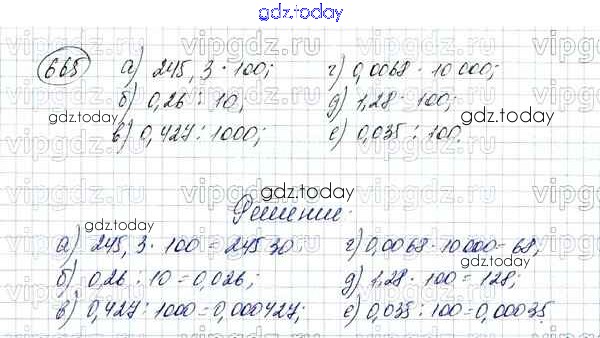 gdz.today
665 а) 245,3 · 100; г) 0,0068 · 10 000;
б) 0,26 : 10; д) 1,28 · 100;
gdz.today gdz.today
в) 0,427 : 1000; е) 0,035 : 100.
gdz.today
Решение:
gdz.today
а) 245,3 · 100 = 24530; г) 0,0068 · 10000 = 68;
gdz.today
б) 0,26 : 10 = 0,026; д) 1,28 · 100 = 128;
в) 0,427 : 1000 = 0,000427; е) 0,035 : 100 = 0,00035.